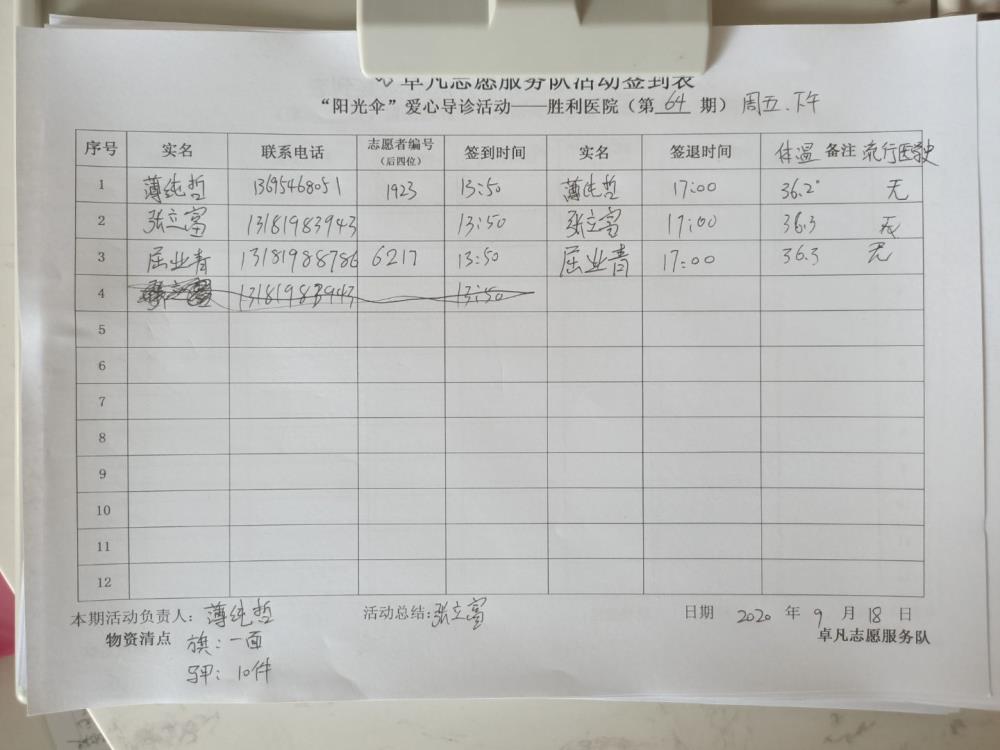 卓凡志愿服务队活动签到表
“阳光伞”爱心导诊活动——胜利医院（第 64 期） 周五.下午
序号 实名 联系电话 志愿者编号（后四位） 签到时间 实名 签退时间 体温 备注 流行医学史
1 薄纯哲 13695468051 1923 13:50 薄纯哲 17:00 36.2° 无
2 张立富 13181983943 13:50 张立富 17:00 36.3 无
3 屈业青 13181988786 6217 13:50 屈业青 17:00 36.3 无
4 13181983943 13:50
5
6
7
8
9
10
11
12
本期活动负责人：薄纯哲 活动总结：张立富 日期 2020 年 9 月 18 日
物资清点 旗：一面 卓凡志愿服务队
10件